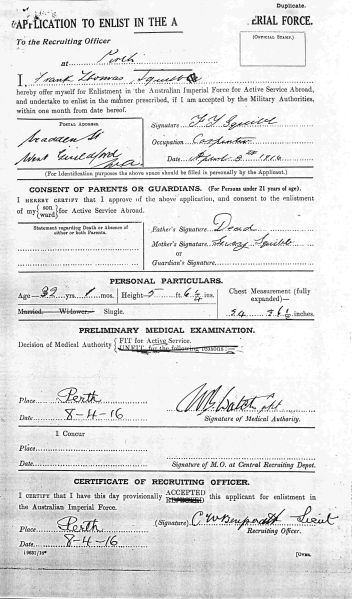 Duplicate.
APPLICATION TO ENLIST IN THE A
ERIAL FORCE.
To the Recruiting Officer
(OFFICIAL STAMP.)
at Perth
I, Frank Thomas Squibb
hereby offer myself for Enlistment in the Australian Imperial Force for Active Service Abroad,
and undertake to enlist in the manner prescribed, if I am accepted by the Military Authorities,
within one month from date hereof.
POSTAL ADDRESS.
St
West Guildford
Signature F T Squibb
Occupation Carpenter
Date April 8th 1916
(For Identification purposes the above space should be filled is personally by the Applicant.)
CONSENT OF PARENTS OR GUARDIANS. (For Persons under 21 years of age).
I HEREBY CERTIFY that I approve of the above application, and consent to the enlistment
of my {son ward} for Active Service Abroad.
Statement regarding Death or Absence of
either or both Parents.
Father's Signature Dead
Mother's Signature Squibb
or
Guardian's Signature
PERSONAL PARTICULARS.
Age 32 yrs. 1 mos. Height 5 ft. 6 3/4 ins.
Chest Measurement (fully
expanded)—
Married. Widower. Single.
34 36½ inches.
PRELIMINARY MEDICAL EXAMINATION.
Decision of Medical Authority {FIT for Active Service.
UNFIT for the following reasons :—
Place Perth
Date 8-4-16
Signature of Medical Authority.
I Concur
Place
Date
Signature of M.O. at Central Recruiting Depot.
CERTIFICATE OF RECRUITING OFFICER.
I CERTIFY that I have this day provisionally ACCEPTED REJECTED this applicant for enlistment in
the Australian Imperial Force.
Place Perth
Date 8-4-16
(Signature) Lieut
Recruiting Officer.
[OVER.